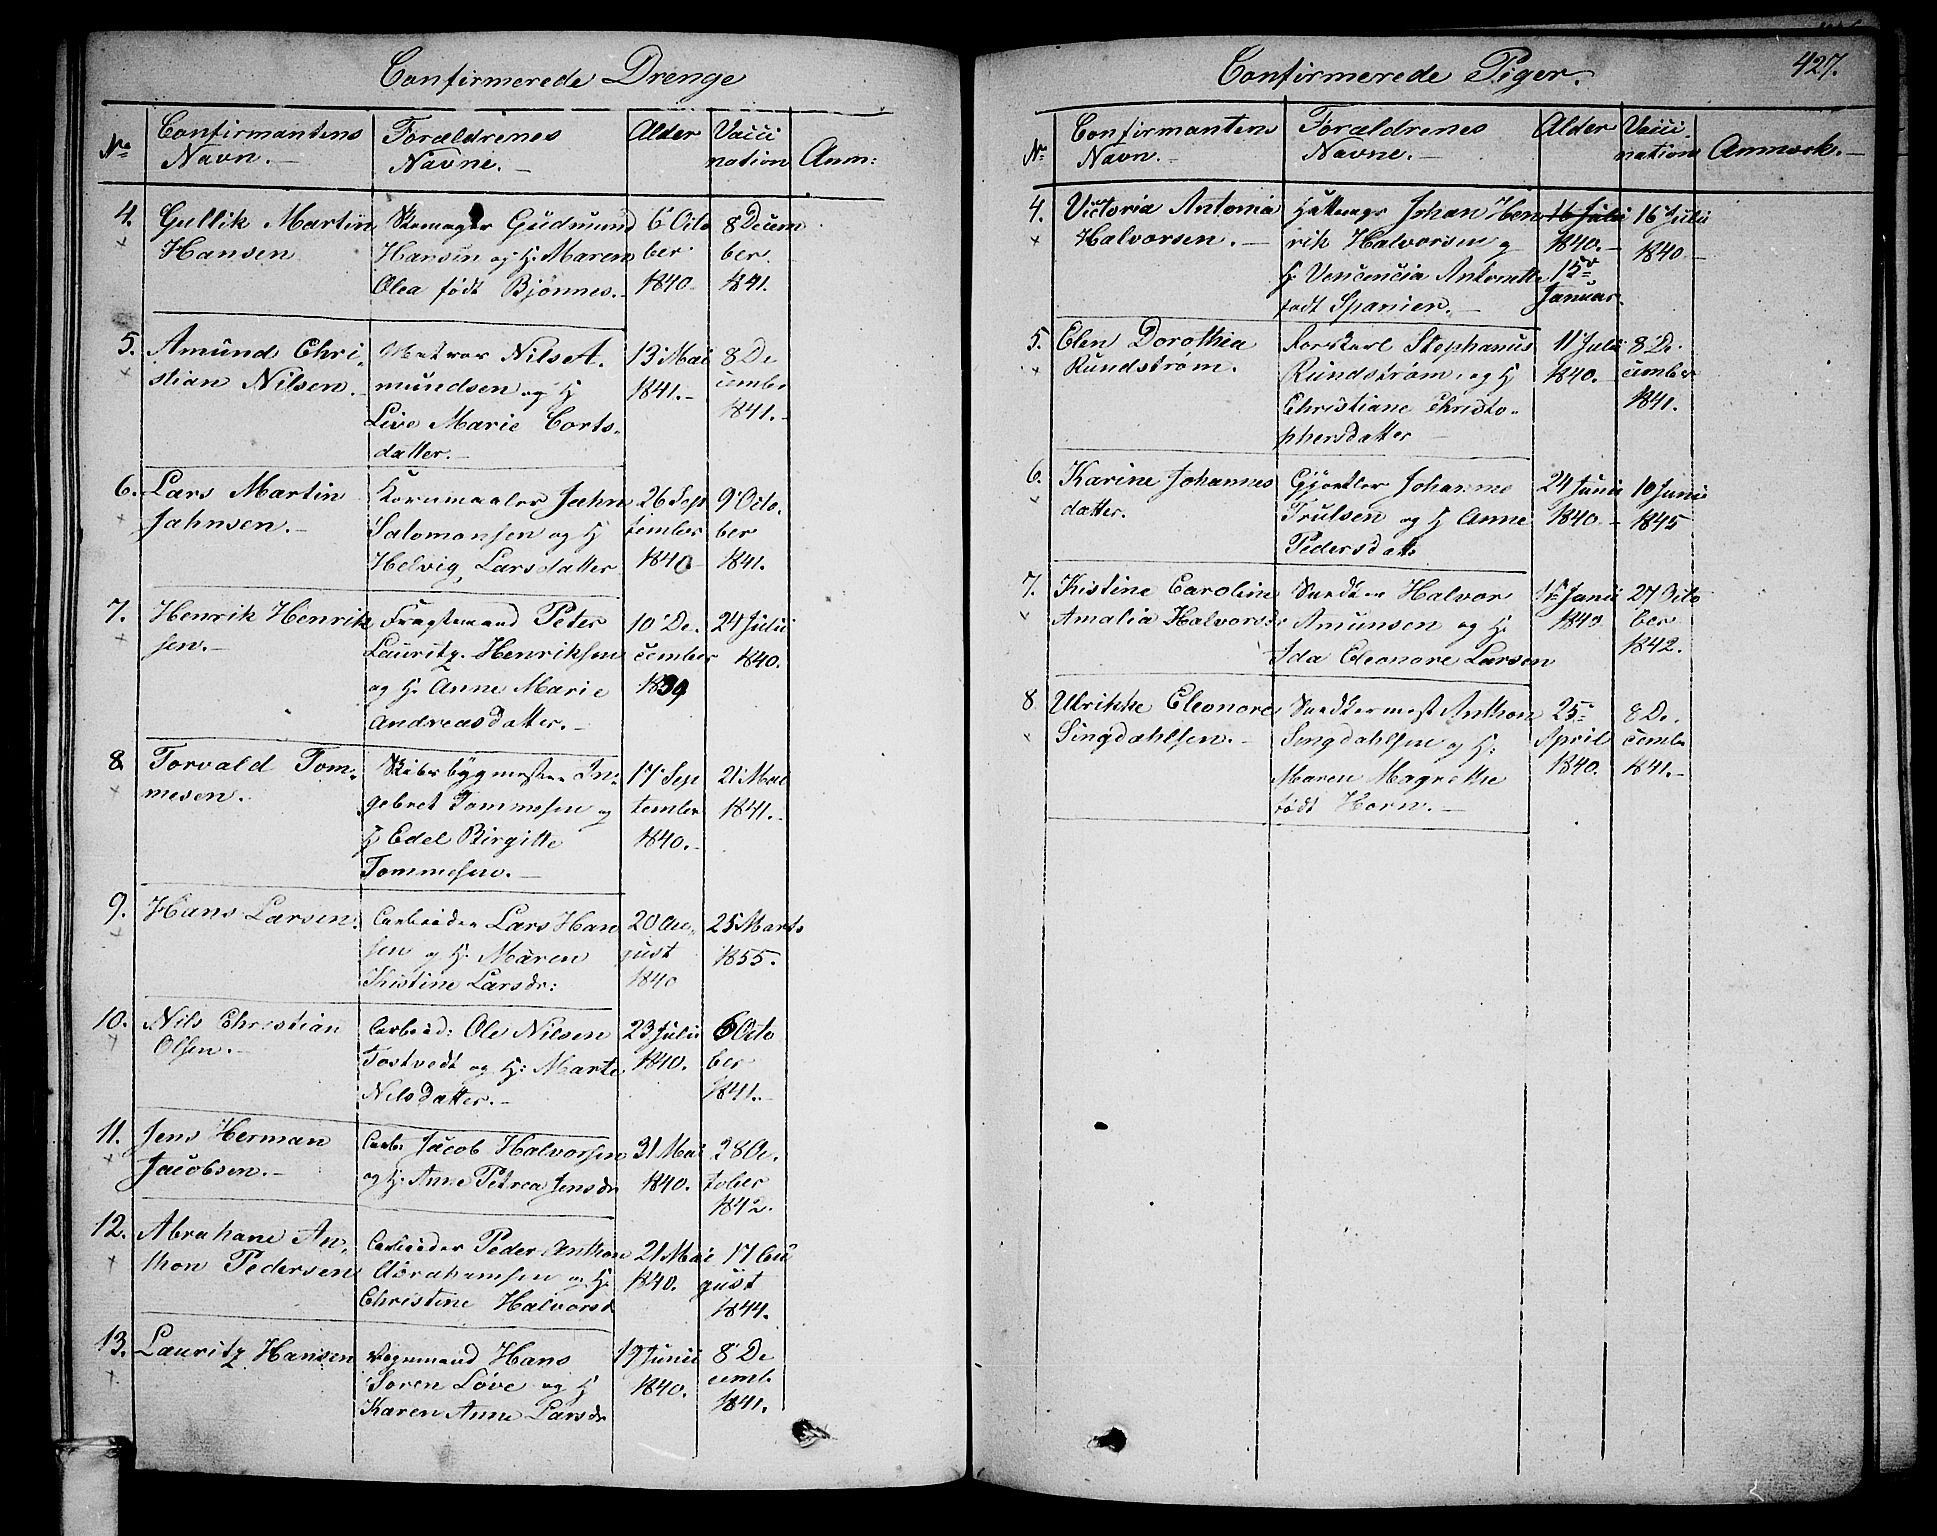 Confirmerede Drenge
No
Confirmantens Navn.
Forældrenes Navne.
Alder
Vacci nation
Anm:
4. Gullik Martin
Hansen
Skomager Gudmund
Hansen og H. Maren
Olea født Bjønnes.
6 Octo
ber
1840
8 Decem
ber.
1841.
5. Amund Chri-
stian Nilsen.
Matros Nils A.
mundsen og H
Live Marie Corts-
datter.
13 Mai
1841.
8 De
cember
1841.
6. Lars Martin
Jahnsen.
Kornmaaler Jahn
Salomonsen og H
Helvig Larsdatter
26 Sep
tember
1840
9 Octo.
ber
1841.
7. Henrik Henrik
sen.
Fragtemand Peter
Lauritz Henriksen
og H. Anne Marie
Andreasdatter.
10 De.
cember
1839
24 Julii
1840.
8. Torvald Tom-
mesen.
Skibsbygmester In-
gebret Tommesen og
H Edel Birgitte
Tommesen.
17 Sep
tember
1840.
21 Mai
1841.
9. Hans Larsen.
Arbeider Lars Han
sen og H. Maren
Kristine Larsdr:
20 Au-
gust
1840
25 Marts
1855.
10. Nils Christian
Olsen.
Arbeid: Ole Nilsen
Tostvedt og H: Marte
Nilsdatter.
23 Julii
1840.
6 Octo
ber
1841.
11. Jens Herman
Jacobsen.
Arb: Jacob Halvorsen
og H. Anne Petrea Jensdr
31 Mai
1840.
28 Oc.
tober
1842.
12. Abrahane An-
thon Pedersen
Arbeider Peder Anthon
Abrahamsen og H.
Christine Halvorsd
21 Mai
1840.
17 Au
gust
1844.
13. Lauritz Hansen
Vognmand Hans
Soren Løve og H
Karen Anne Larsdr
19 Junii
1840.
8 De
cemb
1841.
Confirmerede Piger.
427.
No
Confirmantens Navn.
Forældrenes Navne.
Alder
Vacci. nation
Anmærk.
4. Victoria Antonia
Halvorsen.
Johan Hen
rik Halvorsen og
H Vencencia Antonette
født Spanien.
16 Julii
1840.
15de
Januar.
16 Julii
1840.
5. Elen Dorothea
Rundstrøm.
Rorskarl Stephanus
Rundstrøm og H
Christiane Christo-
phersdatter
11 Julii
1840.
8 De.
cember
1841.
6. Karine Johannes
datter.
Gjørtler Johannes
Trulsen og H Anne
Pedersdatt
24 Junii
1840.
10 Junii
1845
7. Kistine Caroline
Amalia Halvorsd:
Snedker Halvor
Amunsen og H.
Ida Eleonore Larsen
Junii
1840
27 Octo
ber
1842.
8 Ulrikke Eleonore
Singdahlsen.
Snedkermest Anthon
Singdahlsen og H:
Maren Magrethe
født Horn.
25
April
1840.
8 De.
cemb
1841.